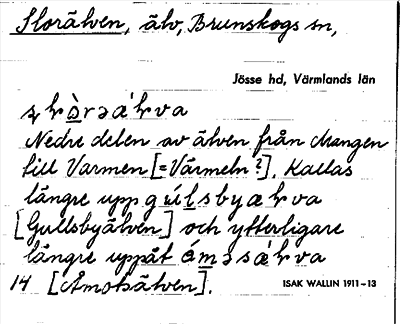 Storälven, älv, Brunskogs sn,
Jösse hd, Värmlands län
Nedre delen av älven från Mangen
till Varmen [=Värmeln?]. Kallas
längre upp
[Gullsbyälven] och ytterligare
längre uppåt
14 [Åmotsälven].
ISAK WALLIN 1911–13